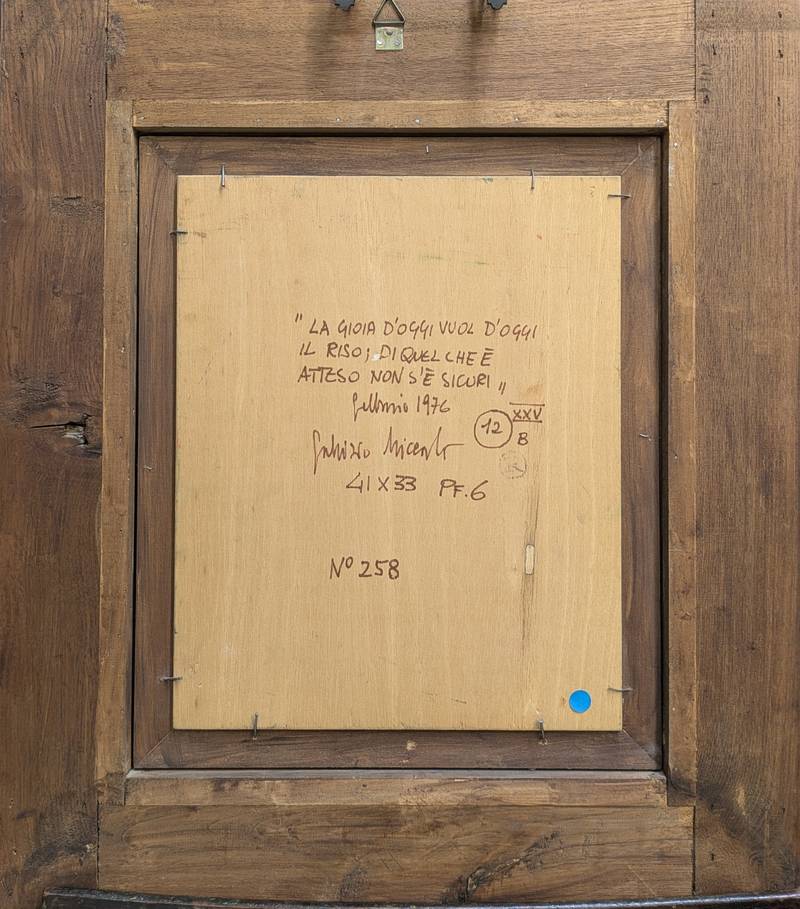 " LA GIOIA D'OGGI VUOL D'OGGI
IL RISO; DI QUEL CHE È
ATTESO NON S'È SICURI "
Febbraio 1976
12
XXV
B
41 X 33 PF. 6
Nº 258